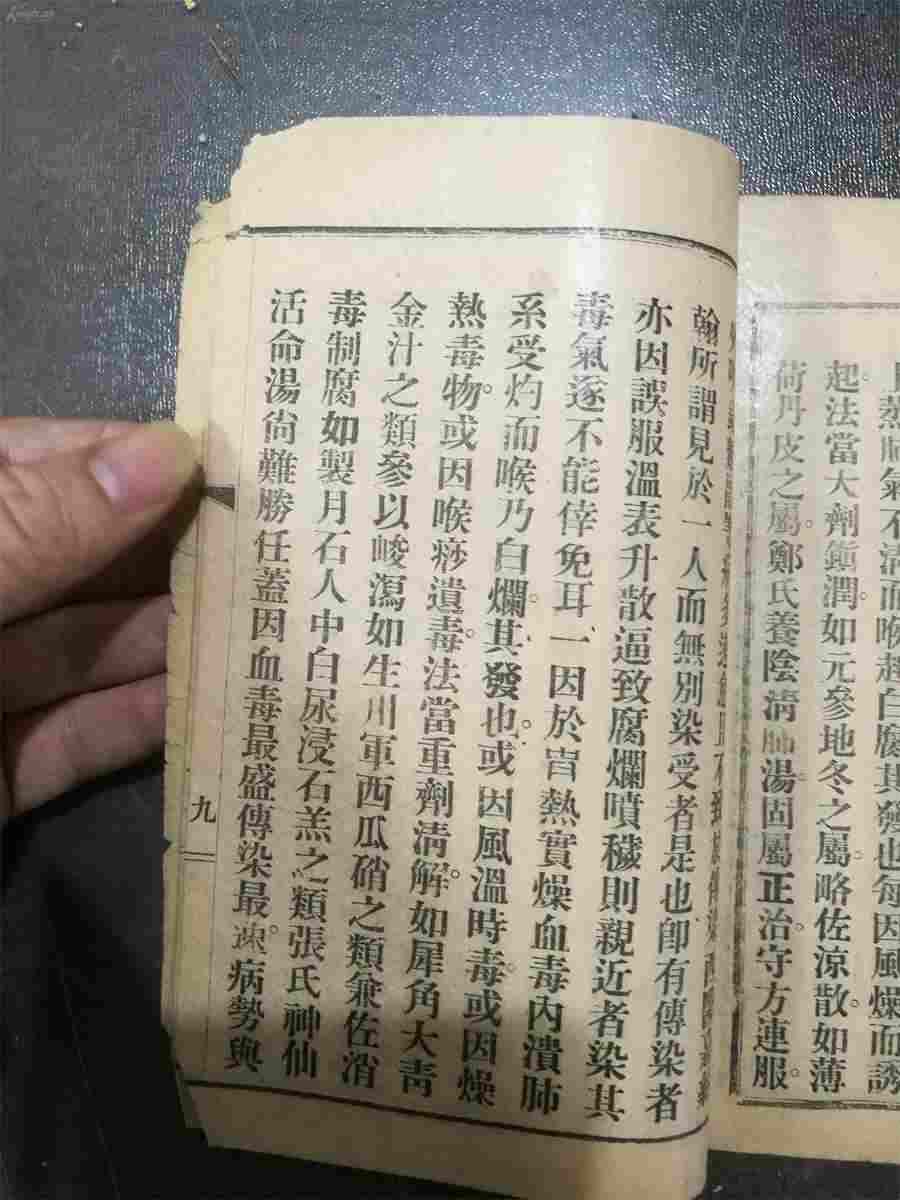 上蒸肺氣不清而喉起白腐其發也每因風燥而誘
起。法當大劑鎮潤。如元參地冬之屬。略佐涼散。如薄
荷丹皮之屬。鄭氏養陰清肺湯固屬正治守方連服。
翰所謂見於一人而無別染受者是也卽有傳染者
亦因誤服溫表升散逼致腐爛噴穢則親近者染其
毒氣逐不能倖免耳一因於胃熱實燥血毒內潰肺
系受灼而喉乃白爛。其發也。或因風溫時毒。或因燥
熱毒物。或因喉痧遺毒。法當重劑清解。如犀角大靑
金汁之類參以峻瀉如生川軍西瓜硝之類兼佐消
毒制腐如製月石人中白尿浸石羔之類張氏神仙
活命湯尙難勝任蓋因血毒最盛傳染最速。病勢與
九